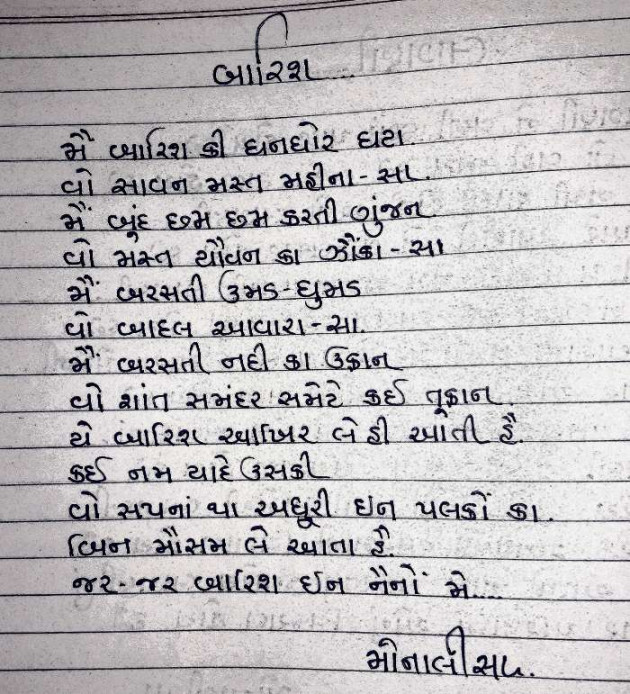 બારિશ
મૈં બારિશ કી ઘનઘોર ઘટા.
વો સાવન મસ્ત મહીના-સા.
મૈં બુંદ છમ છમ કરતી ગુંજન
વો મસ્ત યૌવન કા ઝોંકા-સા
મૈં બરસતી ઉમડ-ઘુમડ
વો બાદલ આવારા-સા.
મૈં બરસતી નદી કા ઉફાન
વો શાંત સમંદર સમેટે કઈ તૂફાન.
યે બારિશ આખિર લે હી આતી હૈ.
કઈ નમ યાદે ઉસકી
વો સપનાં યા અધૂરી ઇન પલકોં કા.
બિન મૌસમ લે આતા હૈ
જર-જર બારિશ ઇન નૈનોં મે....